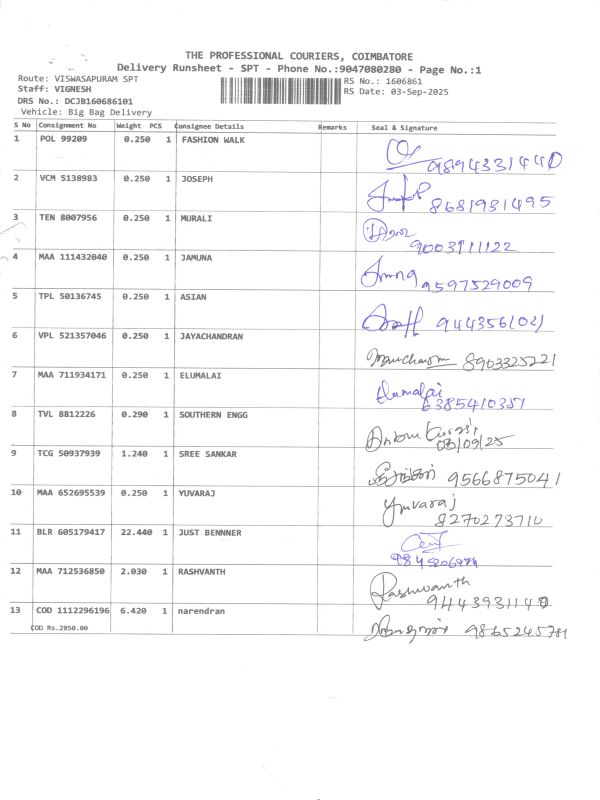 THE PROFESSIONAL COURIERS, COIMBATORE
Delivery Runsheet - SPT - Phone No.:9047080280 - Page No.:1
Route: VISWASAPURAM SPT RS No.: 1606861
Staff: VIGNESH RS Date: 03-Sep-2025
DRS No.: DCJB160686101
Vehicle: Big Bag Delivery
S No Consignment No Weight PCS Consignee Details Remarks Seal & Signature
1 POL 99209 0.250 1 FASHION WALK
9894331440
2 VCM 5138983 0.250 1 JOSEPH
8681931495
3 TEN 8007956 0.250 1 MURALI
9003911122
4 MAA 111432040 0.250 1 JAMUNA
9597529009
5 TPL 50136745 0.250 1 ASIAN
9443561021
6 VPL 521357046 0.250 1 JAYACHANDRAN
8903325221
7 MAA 711934171 0.250 1 ELUMALAI
Elumalai
6385410351
8 TVL 8812226 0.290 1 SOUTHERN ENGG
03/09/25
9 TCG 50937939 1.240 1 SREE SANKAR
9566875041
10 MAA 652695539 0.250 1 YUVARAJ
Yuvaraj
8270273710
11 BLR 605179417 22.440 1 JUST BENNNER
12 MAA 712536850 2.030 1 RASHVANTH
Rashvanth
9443931140
13 COD 1112296196 6.420 1 narendran
COD Rs.2850.00
9865245781